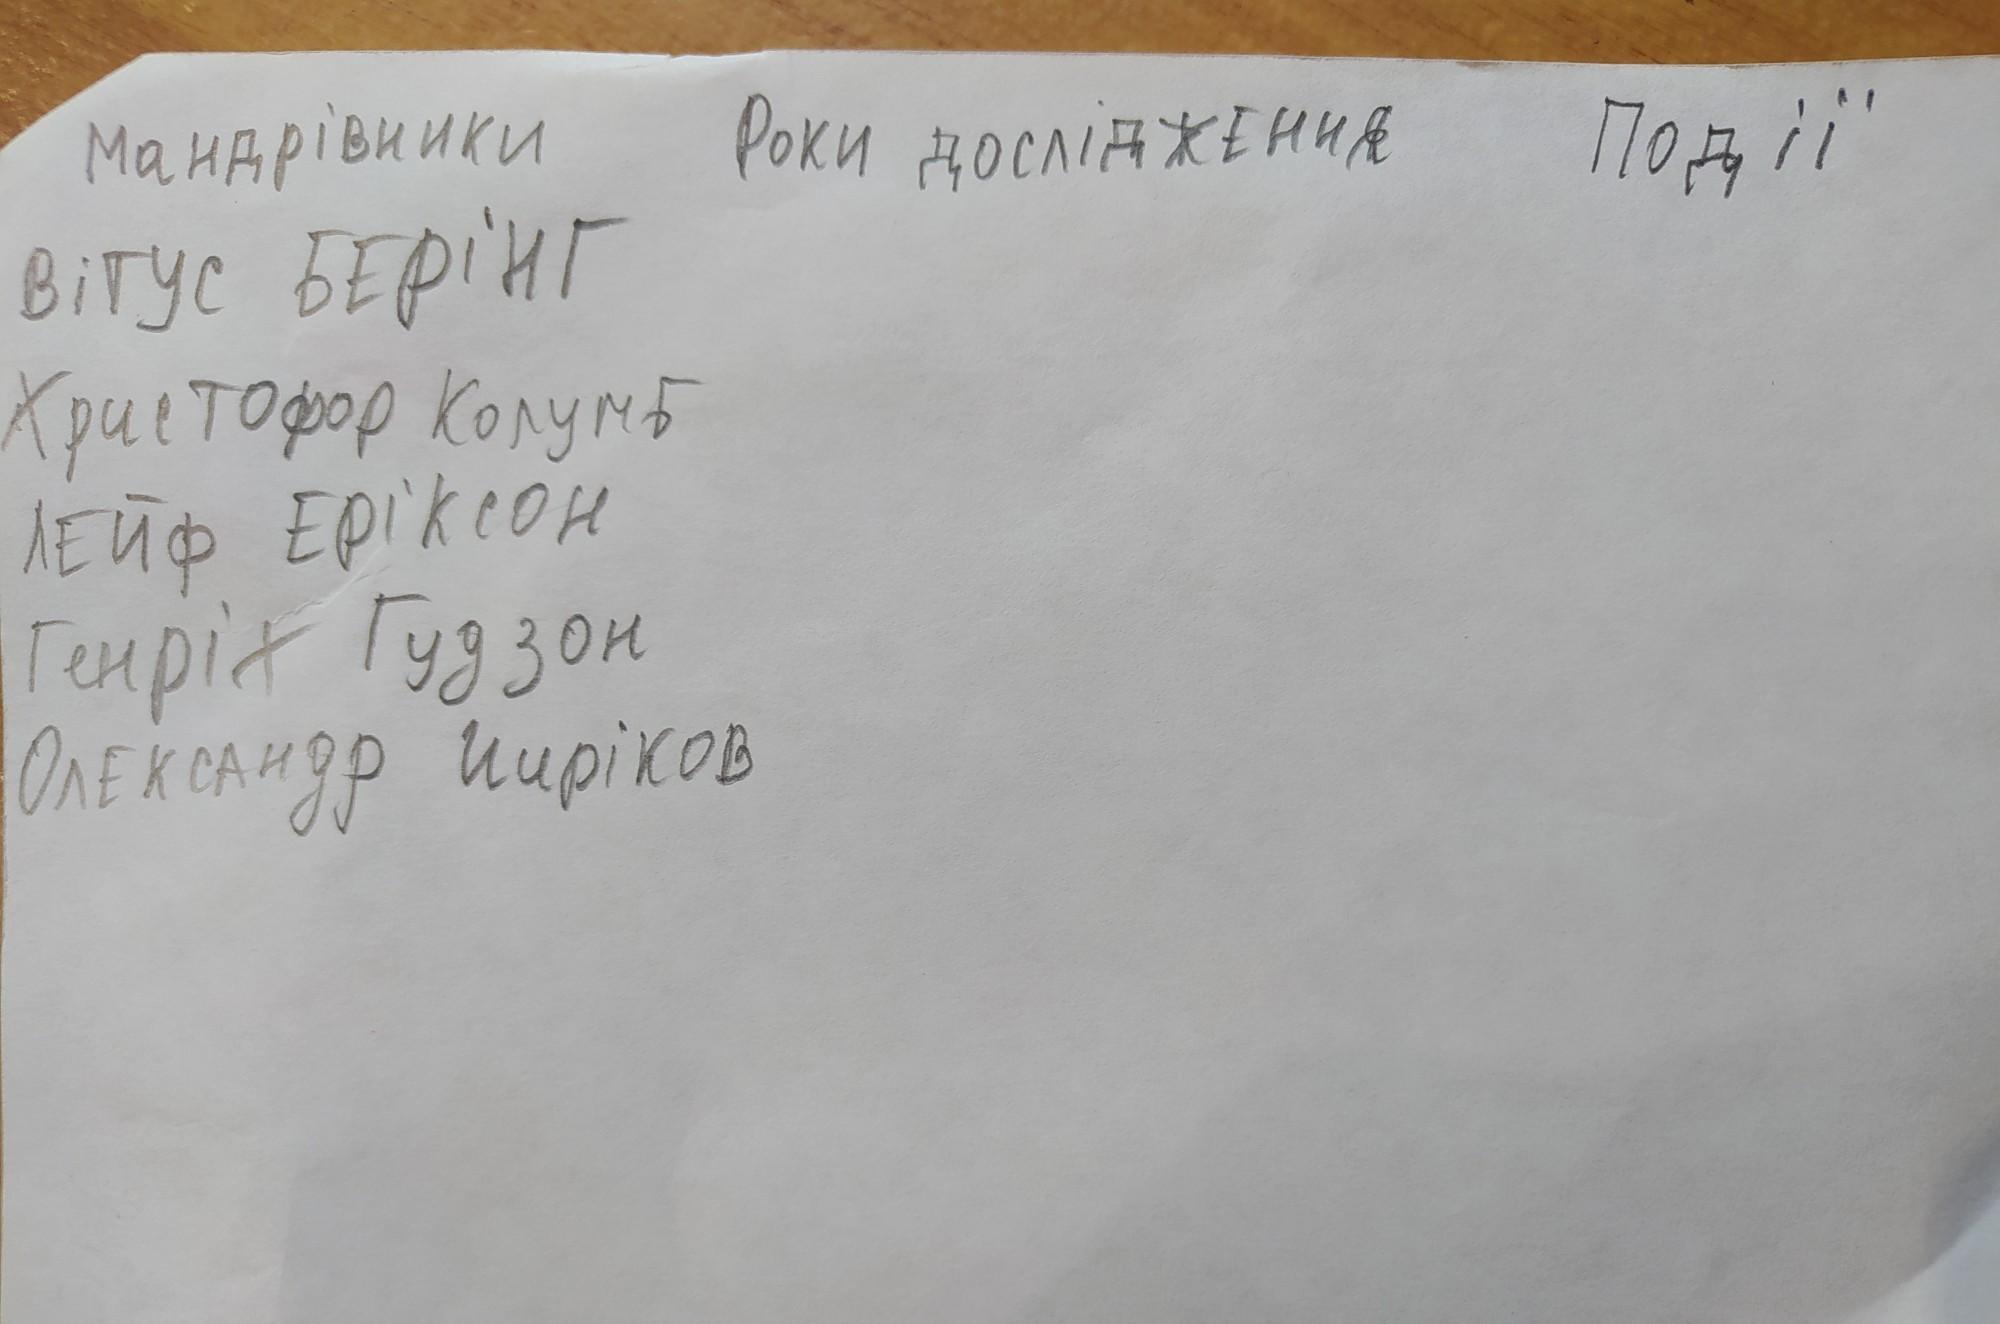 Мандрівники Роки дослідження Події
Вітус БЕРІНГ
Христофор Колумб
ЛЕЙФ ЕРІКСОН
Генріх Гудзон
Олександр Чиріков